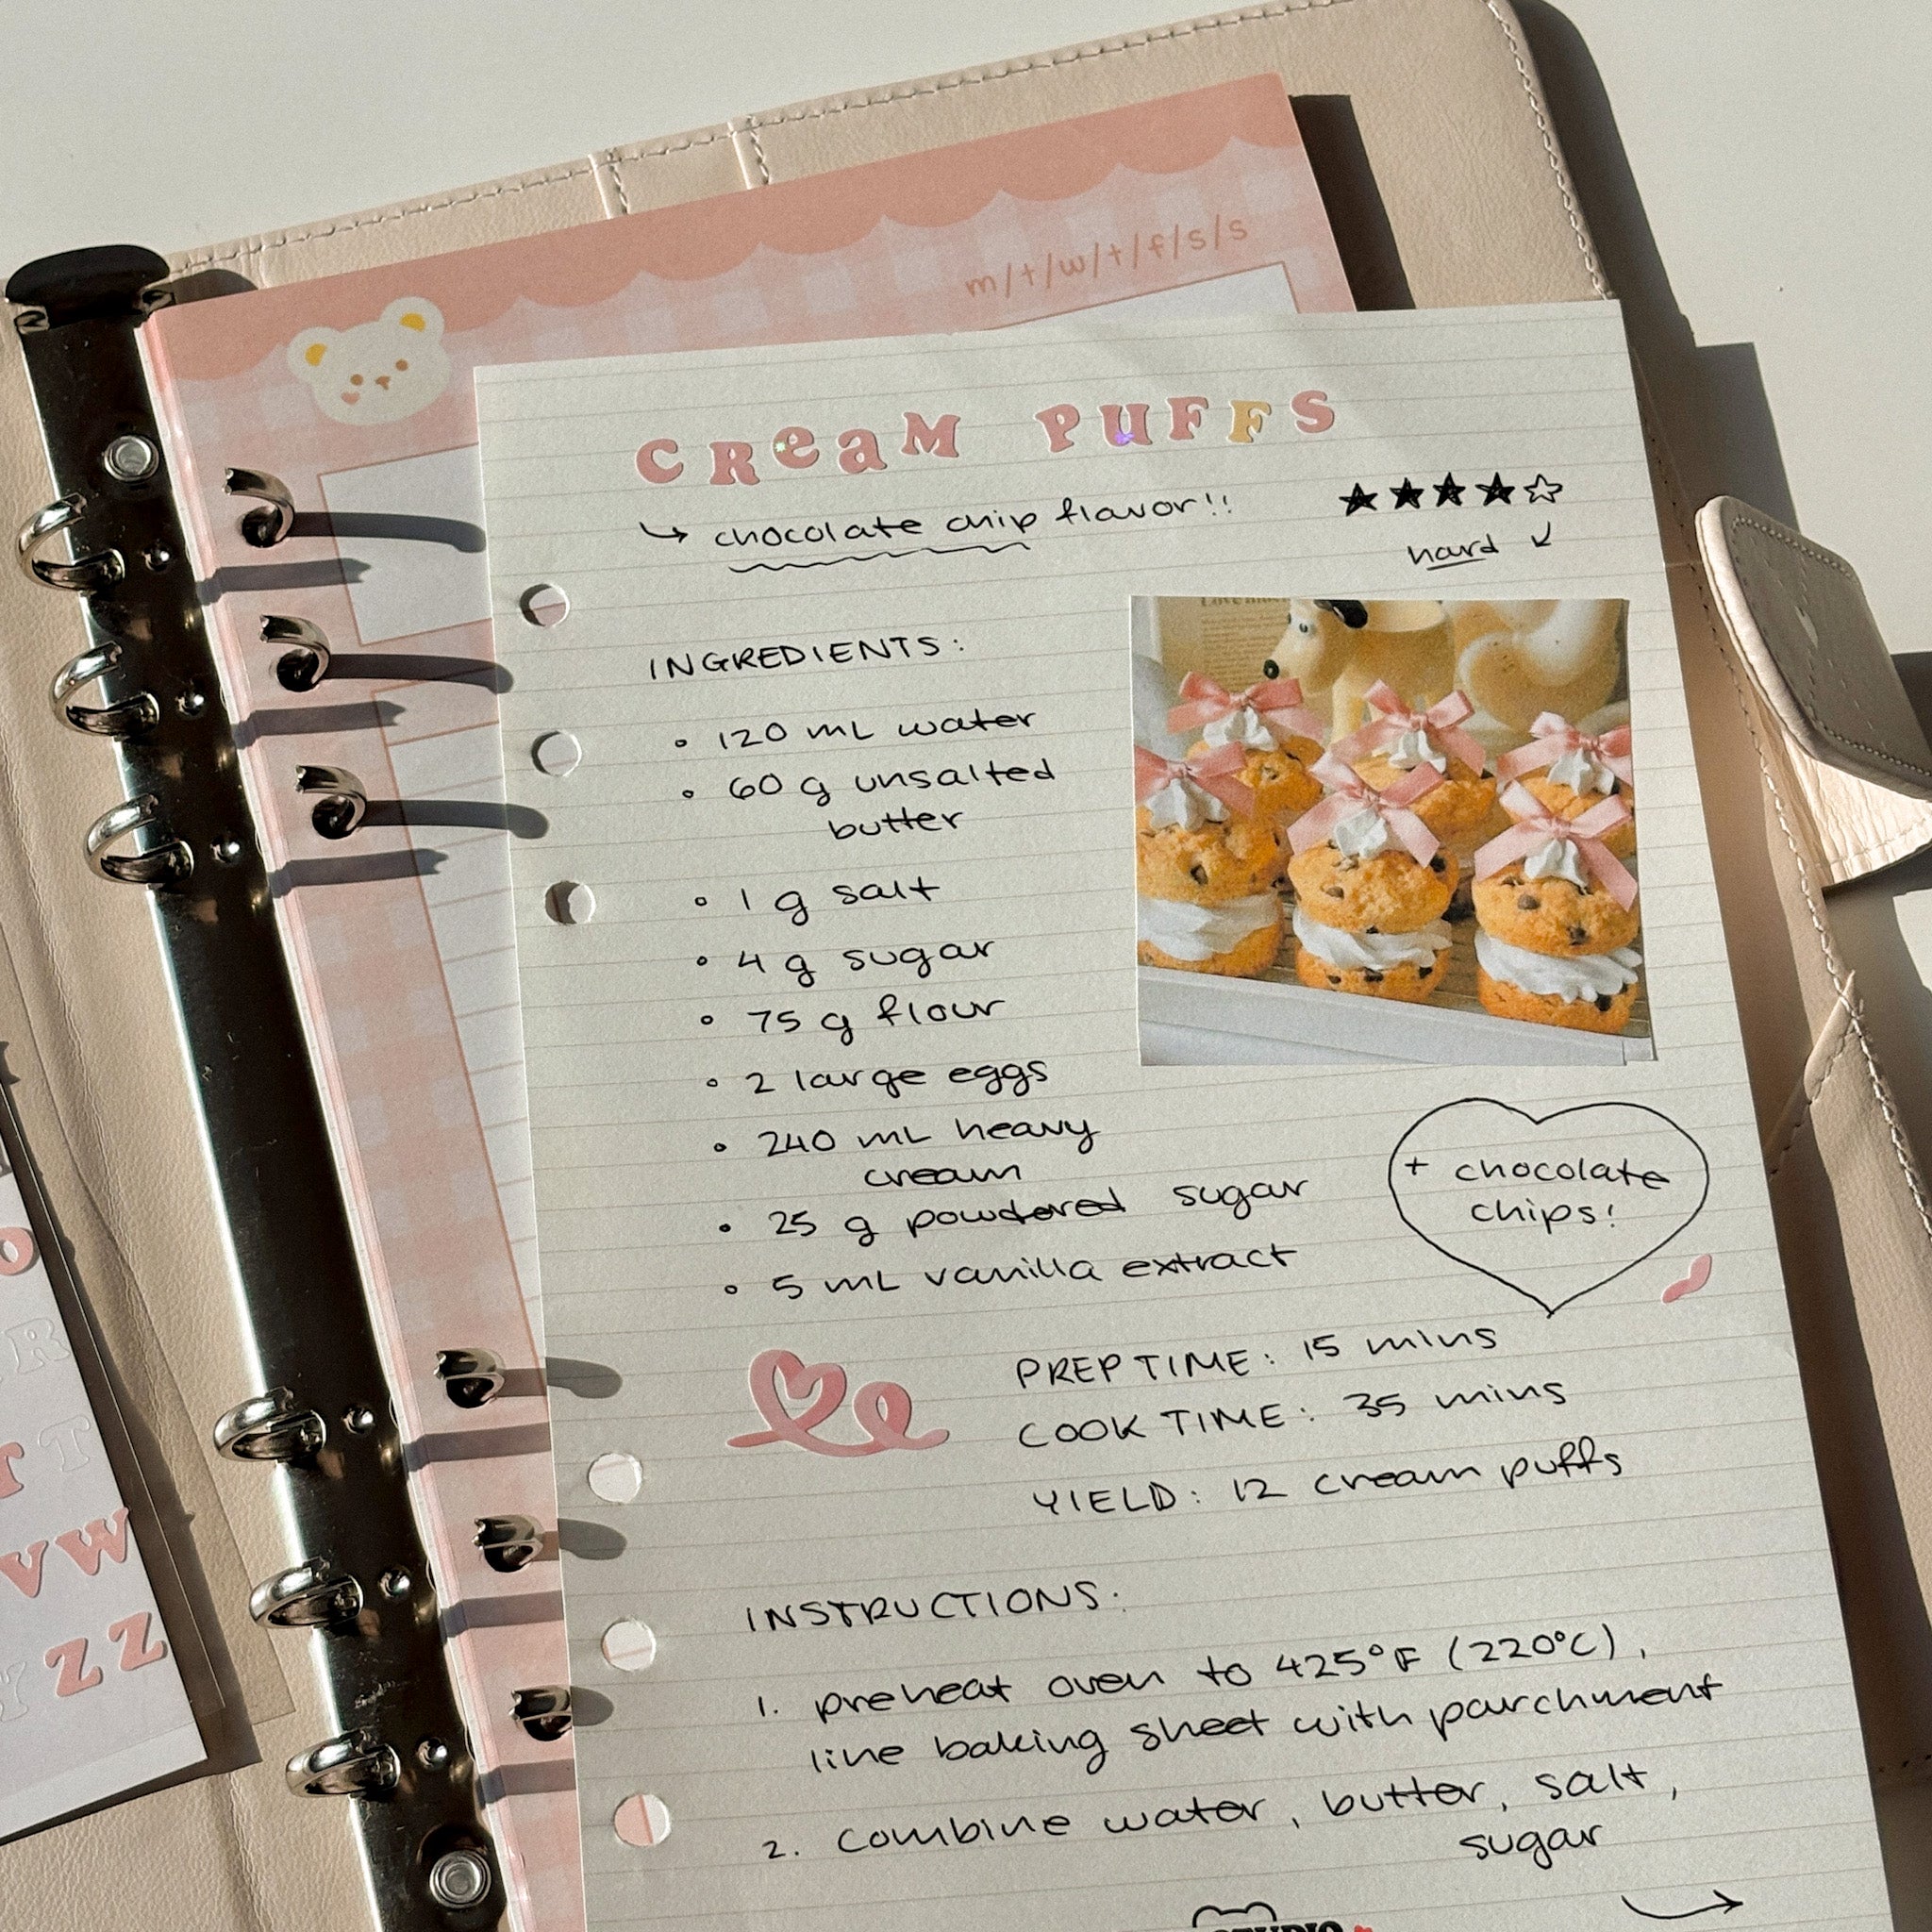 m/t/w/t/f/s/s
CReaM PUFFS
↳ chocolate chip flavor!!
★★★★☆
hard ↙
INGREDIENTS:
• 120 mL water
• 60 g unsalted
butter
• 1 g salt
• 4 g sugar
• 75 g flour
• 2 large eggs
• 240 mL heavy
cream
• 25 g powdered sugar
• 5 mL vanilla extract
+ chocolate
chips!
PREP TIME: 15 mins
COOK TIME: 35 mins
YIELD: 12 cream puffs
INSTRUCTIONS:
1. preheat oven to 425°F (220°C),
line baking sheet with parchment
2. combine water, butter, salt,
sugar
→
STUDIO
R
T T
V W
Z Z